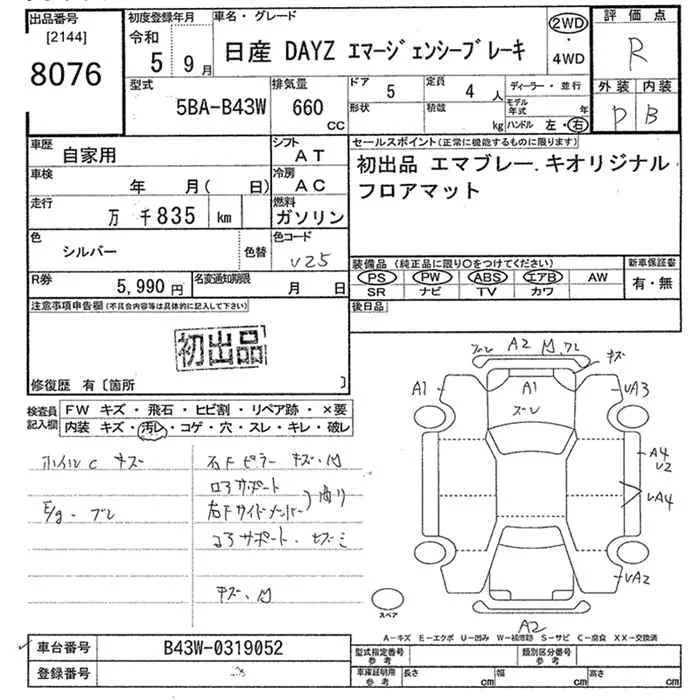 出品番号
[2144]
8076
初度登録年月
令和
5 9月
車名・グレード
日産 DAYZ エマージェンシーブレーキ
2WD
・
4WD
評価点
R
外装 内装
D B
型式
5BA-B43W
排気量
660
CC
ドア
5
定員
4 人
形状
積載
kg
ディーラー・並行
モデル年式 年
ハンドル 左・右
車歴
自家用
シフト
AT
車検
年 月( 日)
冷房
AC
走行
万 千835 km
燃料
ガソリン
色
シルバー
色替
色コード
V25
R券
5,990円
名変通知期限
月 日
セールスポイント(正常に機能するものに限ります)
初出品 エマブレー.キオリジナル
フロアマット
装備品 (純正品に限り○をつけてください)
PS PW ABS エアB AW
SR ナビ TV カワ
新車保証書
有・無
後日品
注意事項申告欄(不具合内容等は具体的に記入して下さい)
初出品
修復歴 有〔箇所 〕
検査員
記入欄
FW キズ・飛石・ヒビ割・リペア跡・×要
内装 キズ・汚レ・コゲ・穴・スレ・キレ・破レ
ホイルC キズ
E/g-ブレ
右Fピラー キズ、凹
コアサポート
右Fサイドメンバー
曲り
コアサポート・ヒズミ
キズ、凹
ズレ A2 凹、ワレ
キズ
A1
A1
ズレ
UA3
A4
U2
UA4
UA2
A2
スペア
A-キズ E-エクボ U-凹み W-補修跡 S-サビ C-腐食 XX-交換済
車台番号
B43W-0319052
登録番号
型式指定番号
参考
類別区分番号
参考
車庫証明用
参考
長さ cm
幅 cm
高さ cm